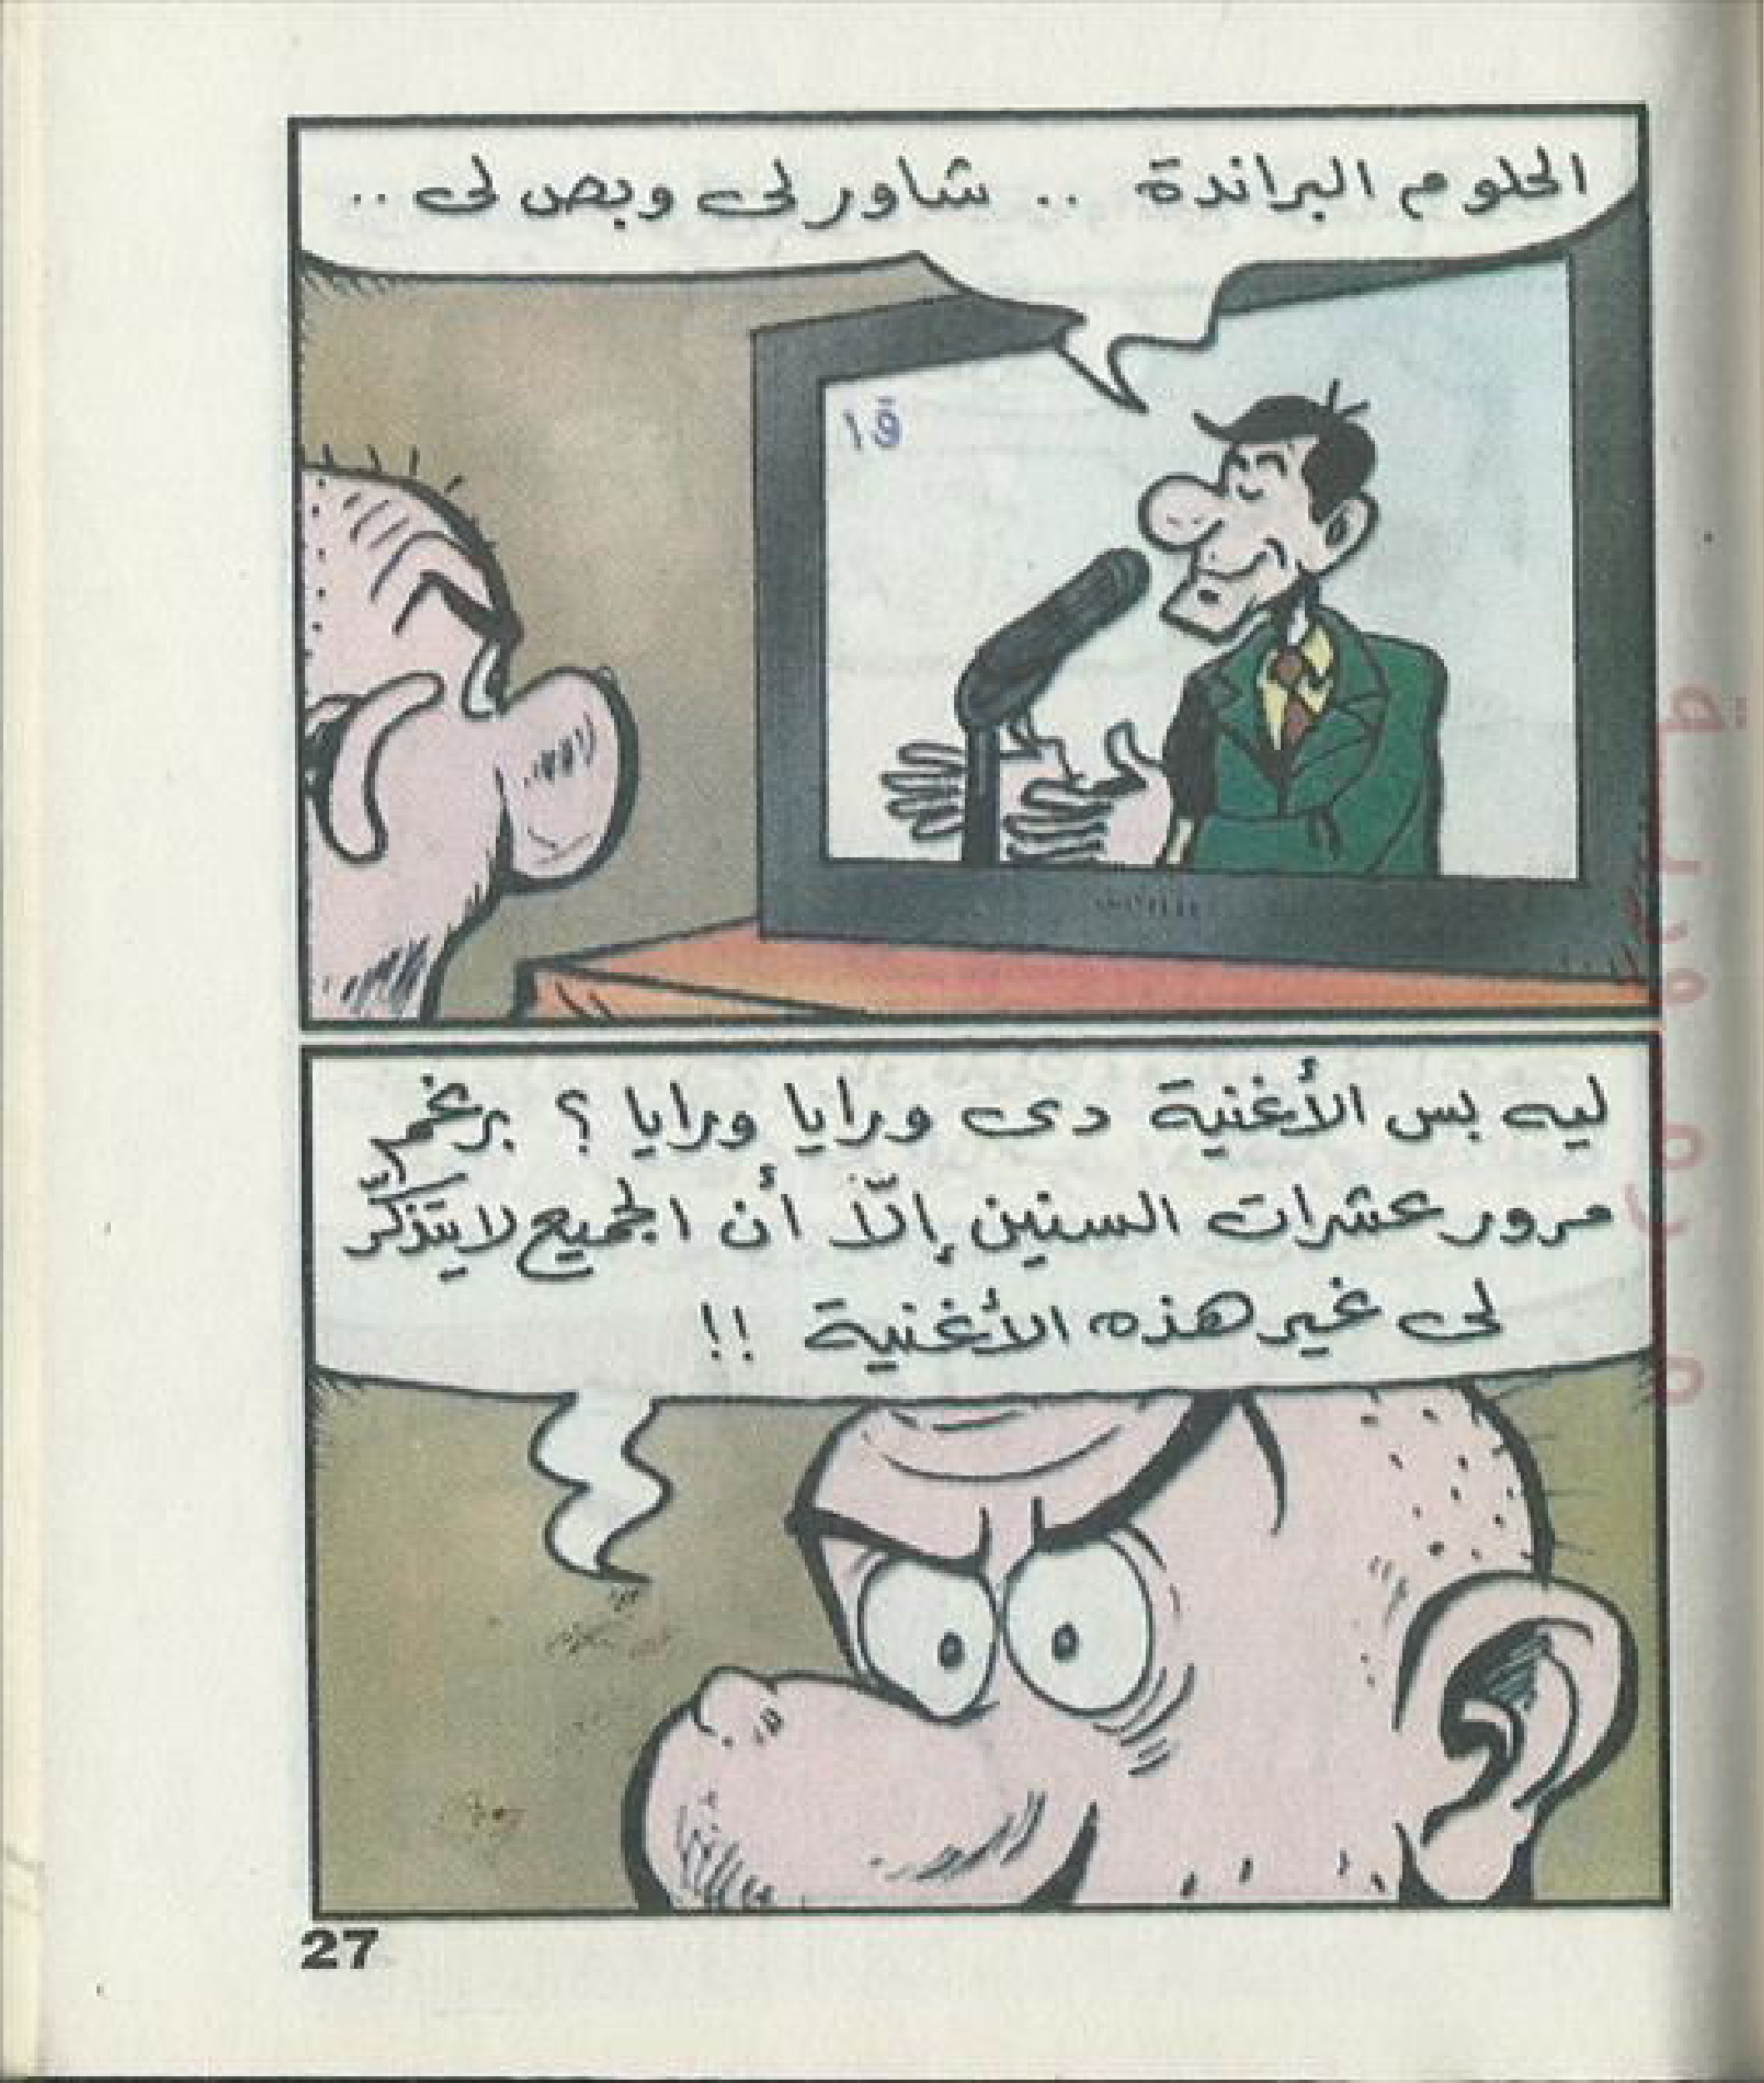 الحلو م البراندة .. شاور لى وبص لى ..
ق ١
ليه بس الأغنية دى ورايا ورايا ؟ برغم
مرور عشرات السنين إلّا أن الجميع لا يتذكّر
لى غير هذه الأغنية !!
27